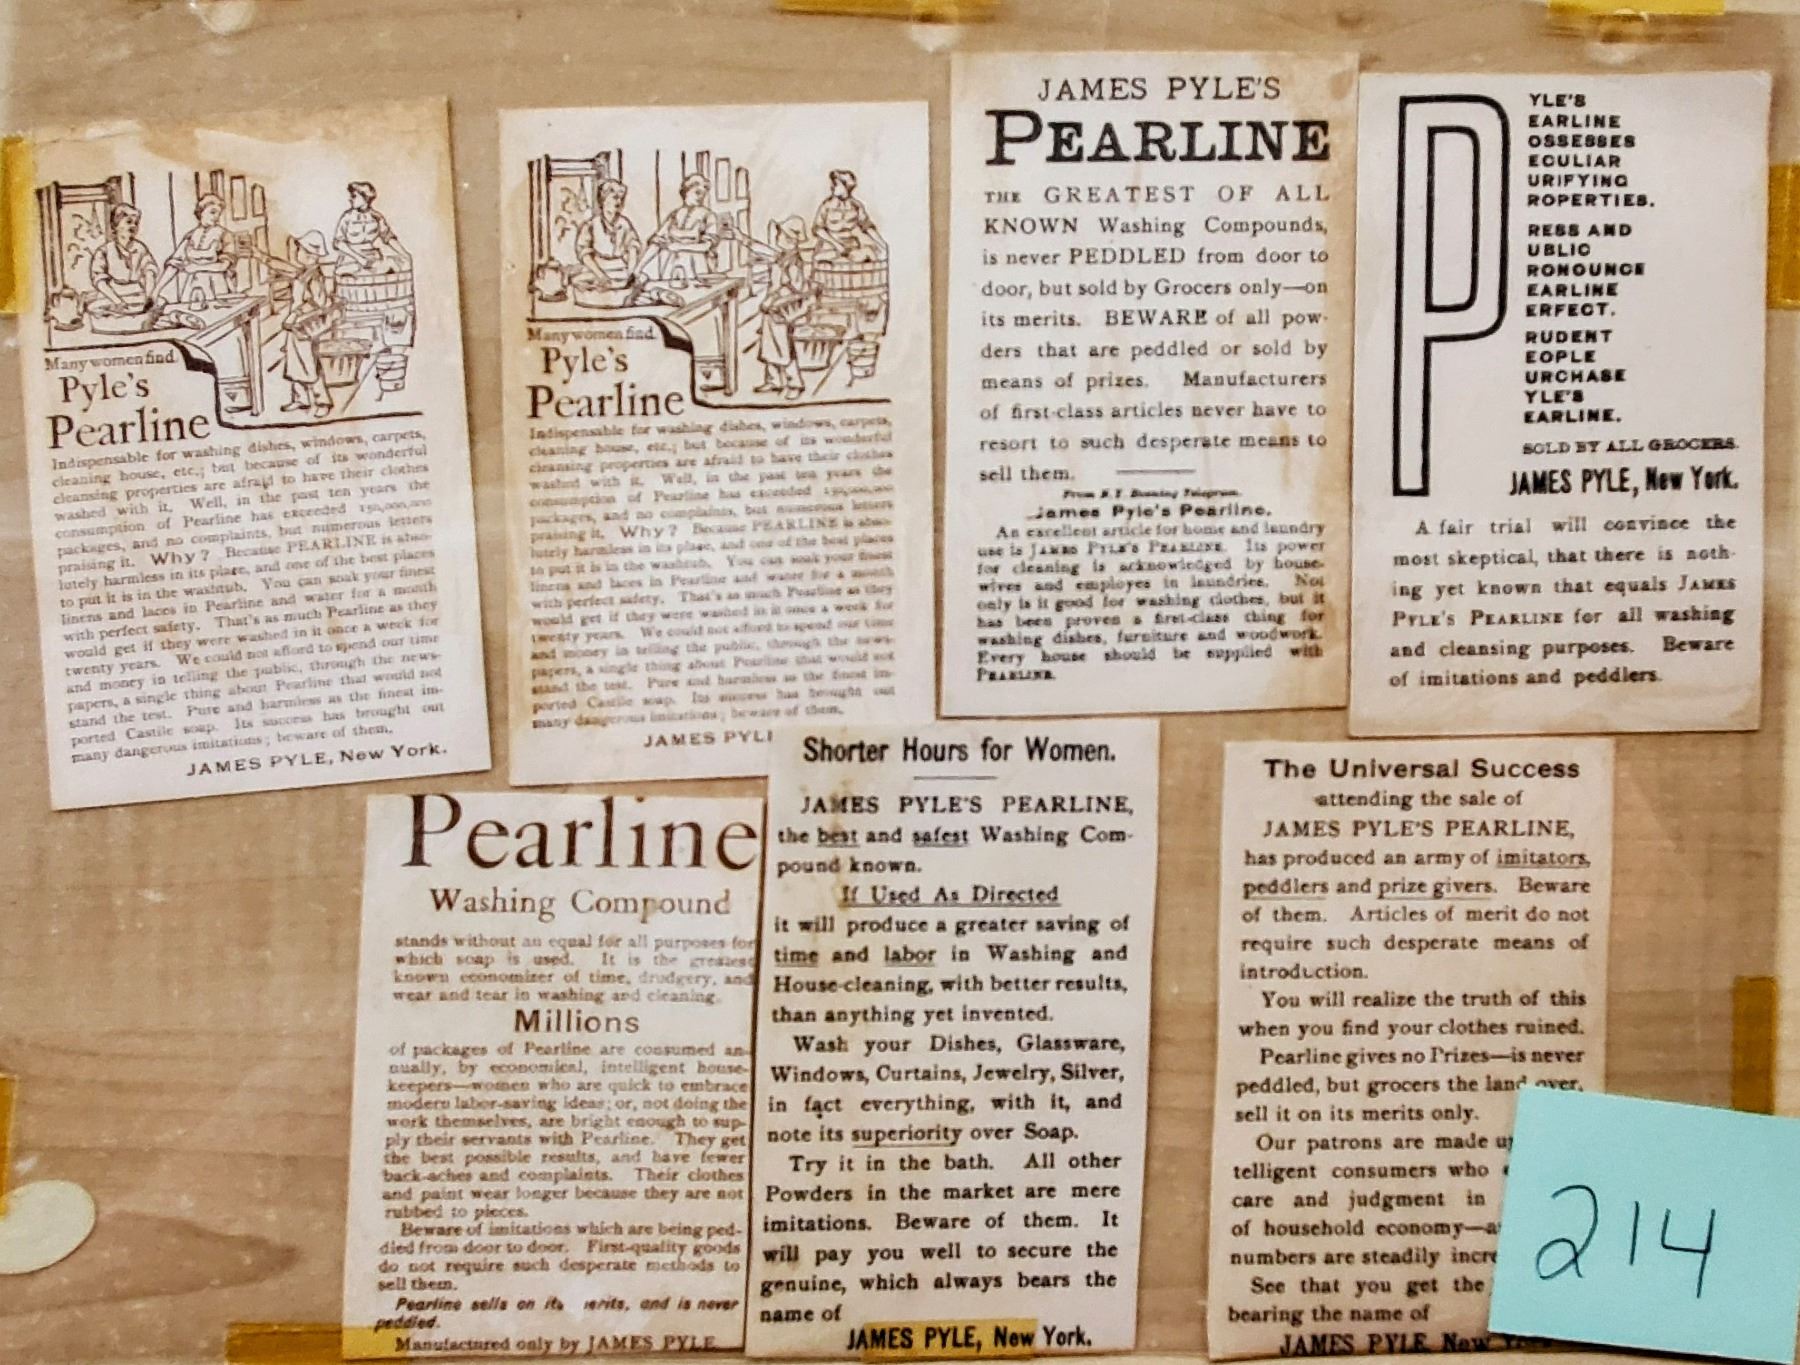 Many women find
Pyle's
Pearline
Indispensable for washing dishes, windows, carpets,
cleaning house, etc.; but because of its wonderful
cleansing properties are afraid to have their clothes
washed with it. Well, in the past ten years the
consumption of Pearline has exceeded 150,000,000
packages, and no complaints, but numerous letters
praising it. Why? Because PEARLINE is abso-
lutely harmless in its place, and one of the best places
to put it is in the washtub. You can soak your finest
linens and laces in Pearline and water for a month
with perfect safety. That's as much Pearline as they
would get if they were washed in it once a week for
twenty years. We could not afford to spend our time
and money in telling the public, through the news-
papers, a single thing about Pearline that would not
stand the test. Pure and harmless as the finest im-
ported Castile soap. Its success has brought out
many dangerous imitations; beware of them.
JAMES PYLE, New York.
Many women find
Pyle's
Pearline
Indispensable for washing dishes, windows, carpets,
cleaning house, etc.; but because of its wonderful
cleansing properties are afraid to have their clothes
washed with it. Well, in the past ten years the
consumption of Pearline has exceeded 150,000,000
packages, and no complaints, but numerous letters
praising it. Why? Because PEARLINE is abso-
lutely harmless in its place, and one of the best places
to put it is in the washtub. You can soak your finest
linens and laces in Pearline and water for a month
with perfect safety. That's as much Pearline as they
would get if they were washed in it once a week for
twenty years. We could not afford to spend our time
and money in telling the public, through the news-
papers, a single thing about Pearline that would not
stand the test. Pure and harmless as the finest im-
ported Castile soap. Its success has brought out
many dangerous imitations; beware of them.
JAMES PYL
JAMES PYLE'S
PEARLINE
THE GREATEST OF ALL
KNOWN Washing Compounds,
is never PEDDLED from door to
door, but sold by Grocers only—on
its merits. BEWARE of all pow-
ders that are peddled or sold by
means of prizes. Manufacturers
of first-class articles never have to
resort to such desperate means to
sell them.
From N. Y. Evening Telegram.
James Pyle's Pearline.
An excellent article for home and laundry
use is JAMES PYLE'S PEARLINE. Its power
for cleaning is acknowledged by house-
wives and employes in laundries. Not
only is it good for washing clothes, but it
has been proven a first-class thing for
washing dishes, furniture and woodwork.
Every house should be supplied with
PEARLINE.
P
YLE'S
EARLINE
OSSESSES
ECULIAR
URIFYING
ROPERTIES.
RESS AND
UBLIC
RONOUNCE
EARLINE
ERFECT.
RUDENT
EOPLE
URCHASE
YLE'S
EARLINE.
SOLD BY ALL GROCERS.
JAMES PYLE, New York.
A fair trial will convince the
most skeptical, that there is noth-
ing yet known that equals JAMES
PYLE'S PEARLINE for all washing
and cleansing purposes. Beware
of imitations and peddlers.
Pearline
Washing Compound
stands without an equal for all purposes for
which soap is used. It is the greatest
known economizer of time, drudgery, and
wear and tear in washing and cleaning.
Millions
of packages of Pearline are consumed an-
nually, by economical, intelligent house-
keepers—women who are quick to embrace
modern labor-saving ideas; or, not doing the
work themselves, are bright enough to sup-
ply their servants with Pearline. They get
the best possible results, and have fewer
back-aches and complaints. Their clothes
and paint wear longer because they are not
rubbed to pieces.
Beware of imitations which are being ped-
dled from door to door. First-quality goods
do not require such desperate methods to
sell them.
Pearline sells on its erits, and is never
peddled.
Manufactured only by JAMES PYLE.
Shorter Hours for Women.
JAMES PYLE'S PEARLINE,
the best and safest Washing Com-
pound known.
If Used As Directed
it will produce a greater saving of
time and labor in Washing and
House-cleaning, with better results,
than anything yet invented.
Wash your Dishes, Glassware,
Windows, Curtains, Jewelry, Silver,
in fact everything, with it, and
note its superiority over Soap.
Try it in the bath. All other
Powders in the market are mere
imitations. Beware of them. It
will pay you well to secure the
genuine, which always bears the
name of
JAMES PYLE, New York.
The Universal Success
attending the sale of
JAMES PYLE'S PEARLINE,
has produced an army of imitators,
peddlers and prize givers. Beware
of them. Articles of merit do not
require such desperate means of
introduction.
You will realize the truth of this
when you find your clothes ruined.
Pearline gives no Prizes—is never
peddled, but grocers the land over,
sell it on its merits only.
Our patrons are made u
telligent consumers who
care and judgment in
of household economy—a
numbers are steadily incre
See that you get the
bearing the name of
JAMES PYLE, New York.
214